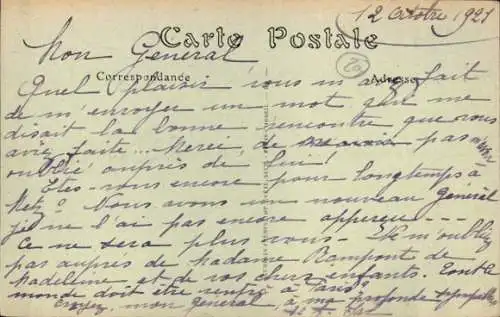 12 Octobre 1921
Mon Général
Carte Postale
Correspondance
Adresse
Quel plaisir vous m'avez fait
de m'envoyer un mot qui me
disait la bonne rencontre que vous
avez faite... Merci, de pas m'avoir
oublié auprès de lui!
Êtes-vous encore pour longtemps à
Metz? Nous avons un nouveau Général
je ne l'ai pas encore apperçu ---
Ce ne sera plus vous - Ne m'oubliez
pas auprès de Madame Rampont de
Madeleine et de vos chers enfants. Tout le
monde doit être rentré à Paris?
Croyez, mon Général, à ma profonde